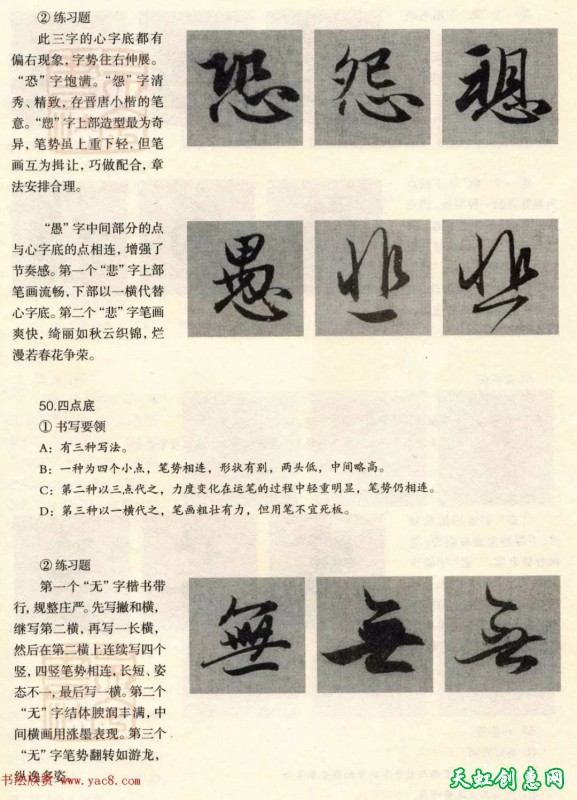 ②练习题
此三字的心字底都有
偏右现象，字势往右伸展。
“恐”字饱满。“怨”字清
秀、精致，存晋唐小楷的笔
意。“愳”字上部造型最为奇
异，笔势虽上重下轻，但笔
画互为揖让，巧做配合，章
法安排合理。
恐 怨
“愚”字中间部分的点
与心字底的点相连，增强了
节奏感。第一个“悲”字上部
笔画流畅，下部以一横代替
心字底。第二个“悲”字笔画
爽快，绮丽如秋云织锦，烂
漫若春花争荣。
愚 悲 悲
50.四点底
①书写要领
A：有三种写法。
B：一种为四个小点，笔势相连，形状有别，两头低，中间略高。
C：第二种以三点代之，力度变化在运笔的过程中轻重明显，笔势仍相连。
D：第三种以一横代之，笔画粗壮有力，但用笔不宜死板。
②练习题
第一个“无”字楷书带
行，规整庄严。先写撇和横，
继写第二横，再写一长横，
然后在第二横上连续写四个
竖，四竖笔势相连，长短、姿
态不一，最后写一横。第二个
“无”字结体腴润丰满，中
间横画用涨墨表现。第三个
“无”字笔势翻转如游龙，
纵逸多姿。
無 無 無
书法欣赏 www.yac8.com
天虹创意网